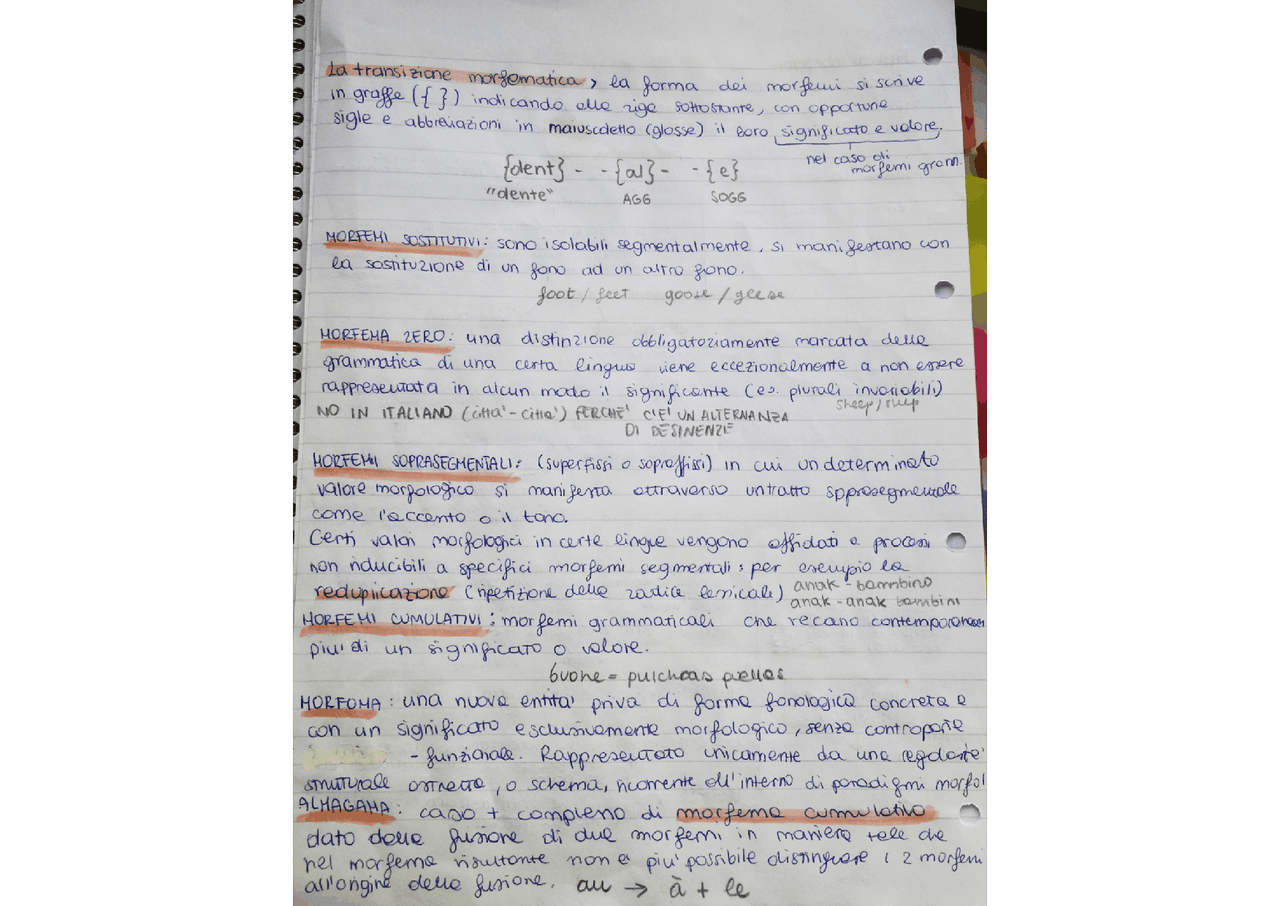 La transizione morfematica > la forma dei morfemi si scrive
in graffe ({ }) indicando alla riga sottostante, con opportune
sigle e abbreviazioni in maiuscoletto (glosse) il loro significato e valore.
nel caso di
morfemi gramm.
{dent} - - {al} - - {e}
"dente" AGG SOGG
MORFEMI SOSTITUTIVI: sono isolabili segmentalmente, si manifestano con
la sostituzione di un fono ad un altro fono.
foot / feet goose / geese
MORFEMA ZERO: una distinzione obbligatoriamente marcata della
grammatica di una certa lingua viene eccezionalmente a non essere
rappresentata in alcun modo il significante (es. plurali invariabili)
sheep/sheep
NO IN ITALIANO (città'-città') PERCHE' C'E' UN ALTERNANZA
DI DESINENZE
MORFEMI SOPRASEGMENTALI: (superfissi o soprafissi) in cui un determinato
valore morfologico si manifesta attraverso un tratto soprasegmentale
come l'accento o il tono.
Certi valori morfologici in certe lingue vengono affidati a processi
non riducibili a specifici morfemi segmentali: per esempio la
reduplicazione (ripetizione della radice lessicale) anak - bambino
anak - anak bambini
MORFEMI CUMULATIVI: morfemi grammaticali che recano
piu' di un significato o valore.
buone = pulchras puellas
MORFOMA: una nuova entita' priva di forma fonologica concreta e
con un significato esclusivamente morfologico, senza controparte
- funzionale. Rappresentato unicamente da una
strutturale astratta, o schema, ricorrente all'interno di paradigmi morfol
ALMAGAMA: caso + complesso di morfema cumulativo
dato dalla fusione di due morfemi in maniera tale che
nel morfema risultante non e' piu' possibile distinguere i 2 morfemi
all'origine della fusione. au → à + le